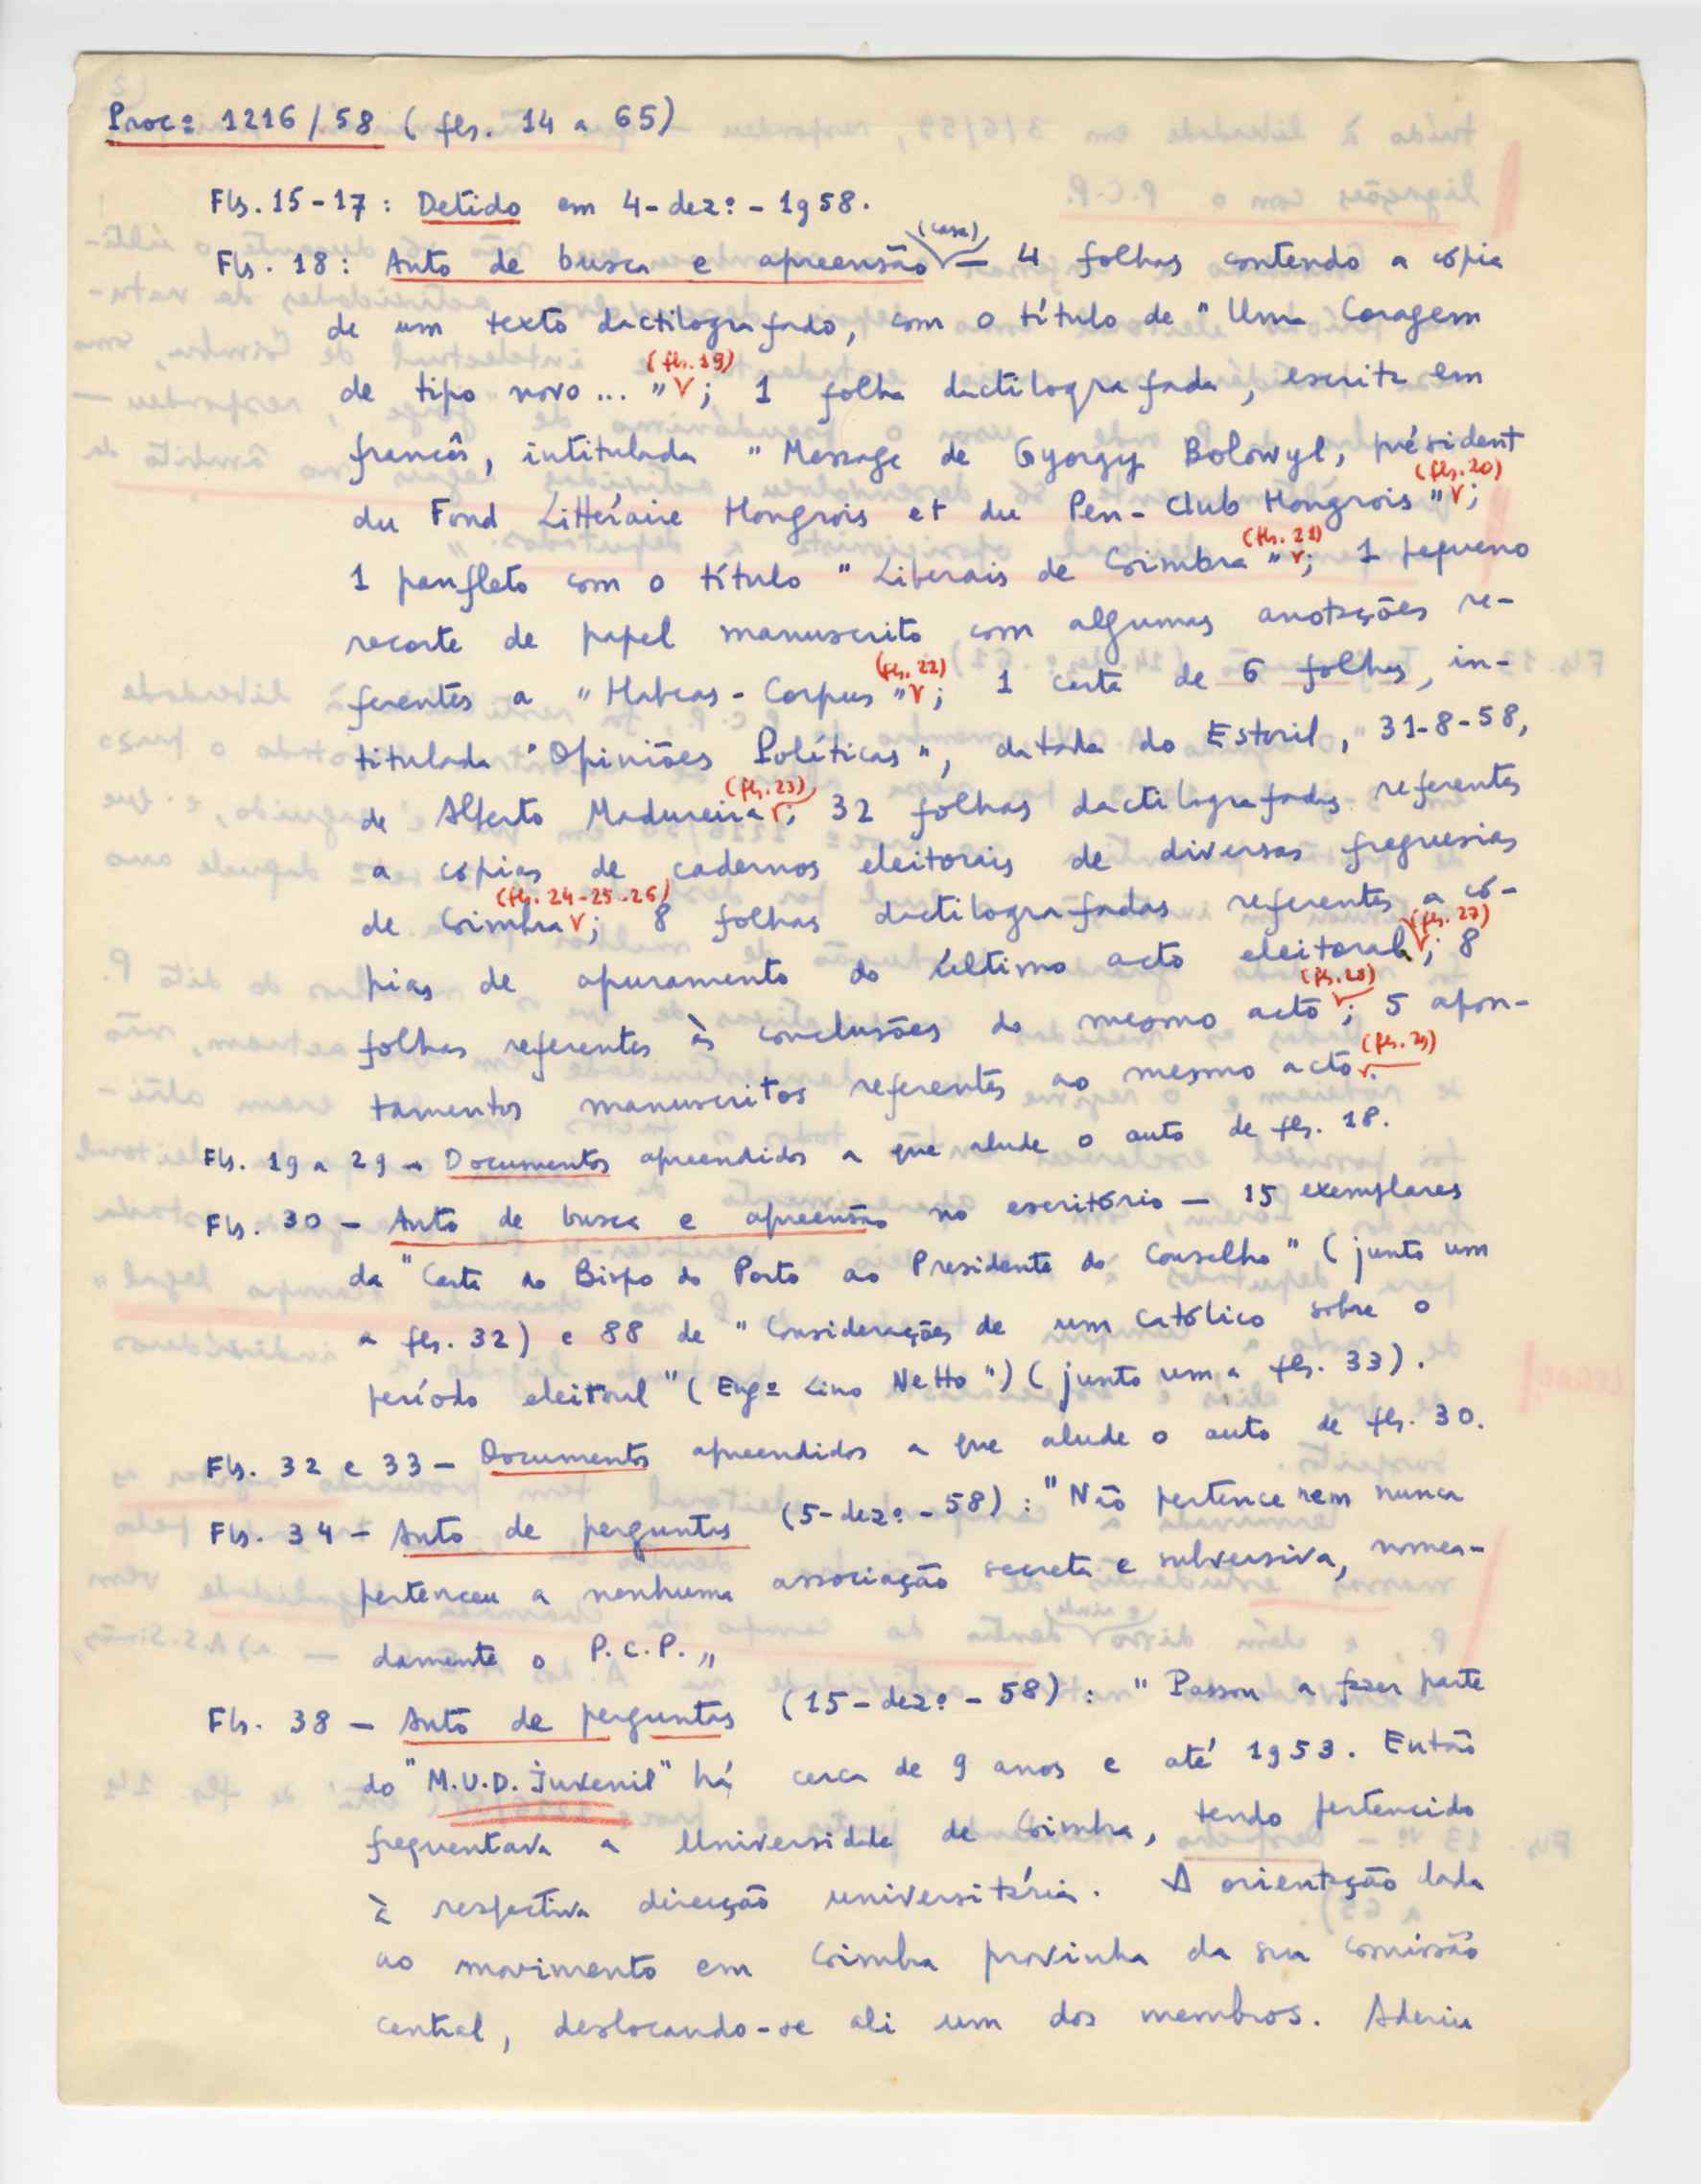 Procº 1216/58 (fls. 14 a 65)
Fls. 15-17: Detido em 4-dezº-1958.
Fls. 18: Auto de busca e apreensão (casa) — 4 folhas contendo a cópia
de um texto dactilografado, com o título de "Uma Coragem
de tipo novo..." (fls. 19); 1 folha dactilografada, escrita em
francês, intitulada "Message de Gyorgy Bolowyl, président
du Fond Littéraire Hongrois et du Pen-Club Hongrois" (fls. 20);
1 panfleto com o título "Liberais de Coimbra" (fls. 21); 1 pequeno
recorte de papel manuscrito com algumas anotações re-
ferentes a "Habeas-Corpus" (fls. 22); 1 carta de 6 folhas, in-
titulada "Opiniões Políticas", datada do Estoril, 31-8-58,
de Alberto Madureira (fls. 23); 32 folhas dactilografadas referentes
a cópias de cadernos eleitorais de diversas freguesias
de Coimbra (fls. 24-25-26); 8 folhas dactilografadas referentes a có-
pias de apuramento do último acto eleitoral (fls. 27); 8
folhas referentes às conclusões do mesmo acto (fls. 28); 5 apon-
tamentos manuscritos referentes ao mesmo acto (fls. 29).
Fls. 19 a 29 — Documentos apreendidos a que alude o auto de fls. 18.
Fls. 30 — Auto de busca e apreensão no escritório — 15 exemplares
da "Carta do Bispo do Porto ao Presidente do Conselho" (junto um
a fls. 32) e 88 de "Considerações de um católico sobre o
período eleitoral" (Engº Lino Netto") (junto um a fls. 33).
Fls. 32 e 33 — Documentos apreendidos a que alude o auto de fls. 30.
Fls. 34 — Auto de perguntas (5-dezº-58): "Não pertence nem nunca
pertenceu a nenhuma associação secreta e subversiva, nomea-
damente o P.C.P."
Fls. 38 — Auto de perguntas (15-dezº-58): "Passou a fazer parte
do "M.U.D. Juvenil" há cerca de 9 anos e até 1953. Então
frequentava a Universidade de Coimbra, tendo pertencido
à respectiva direcção universitária. A orientação dada
ao movimento em Coimbra provinha da sua comissão
central, deslocando-se ali um dos membros. Aderiu